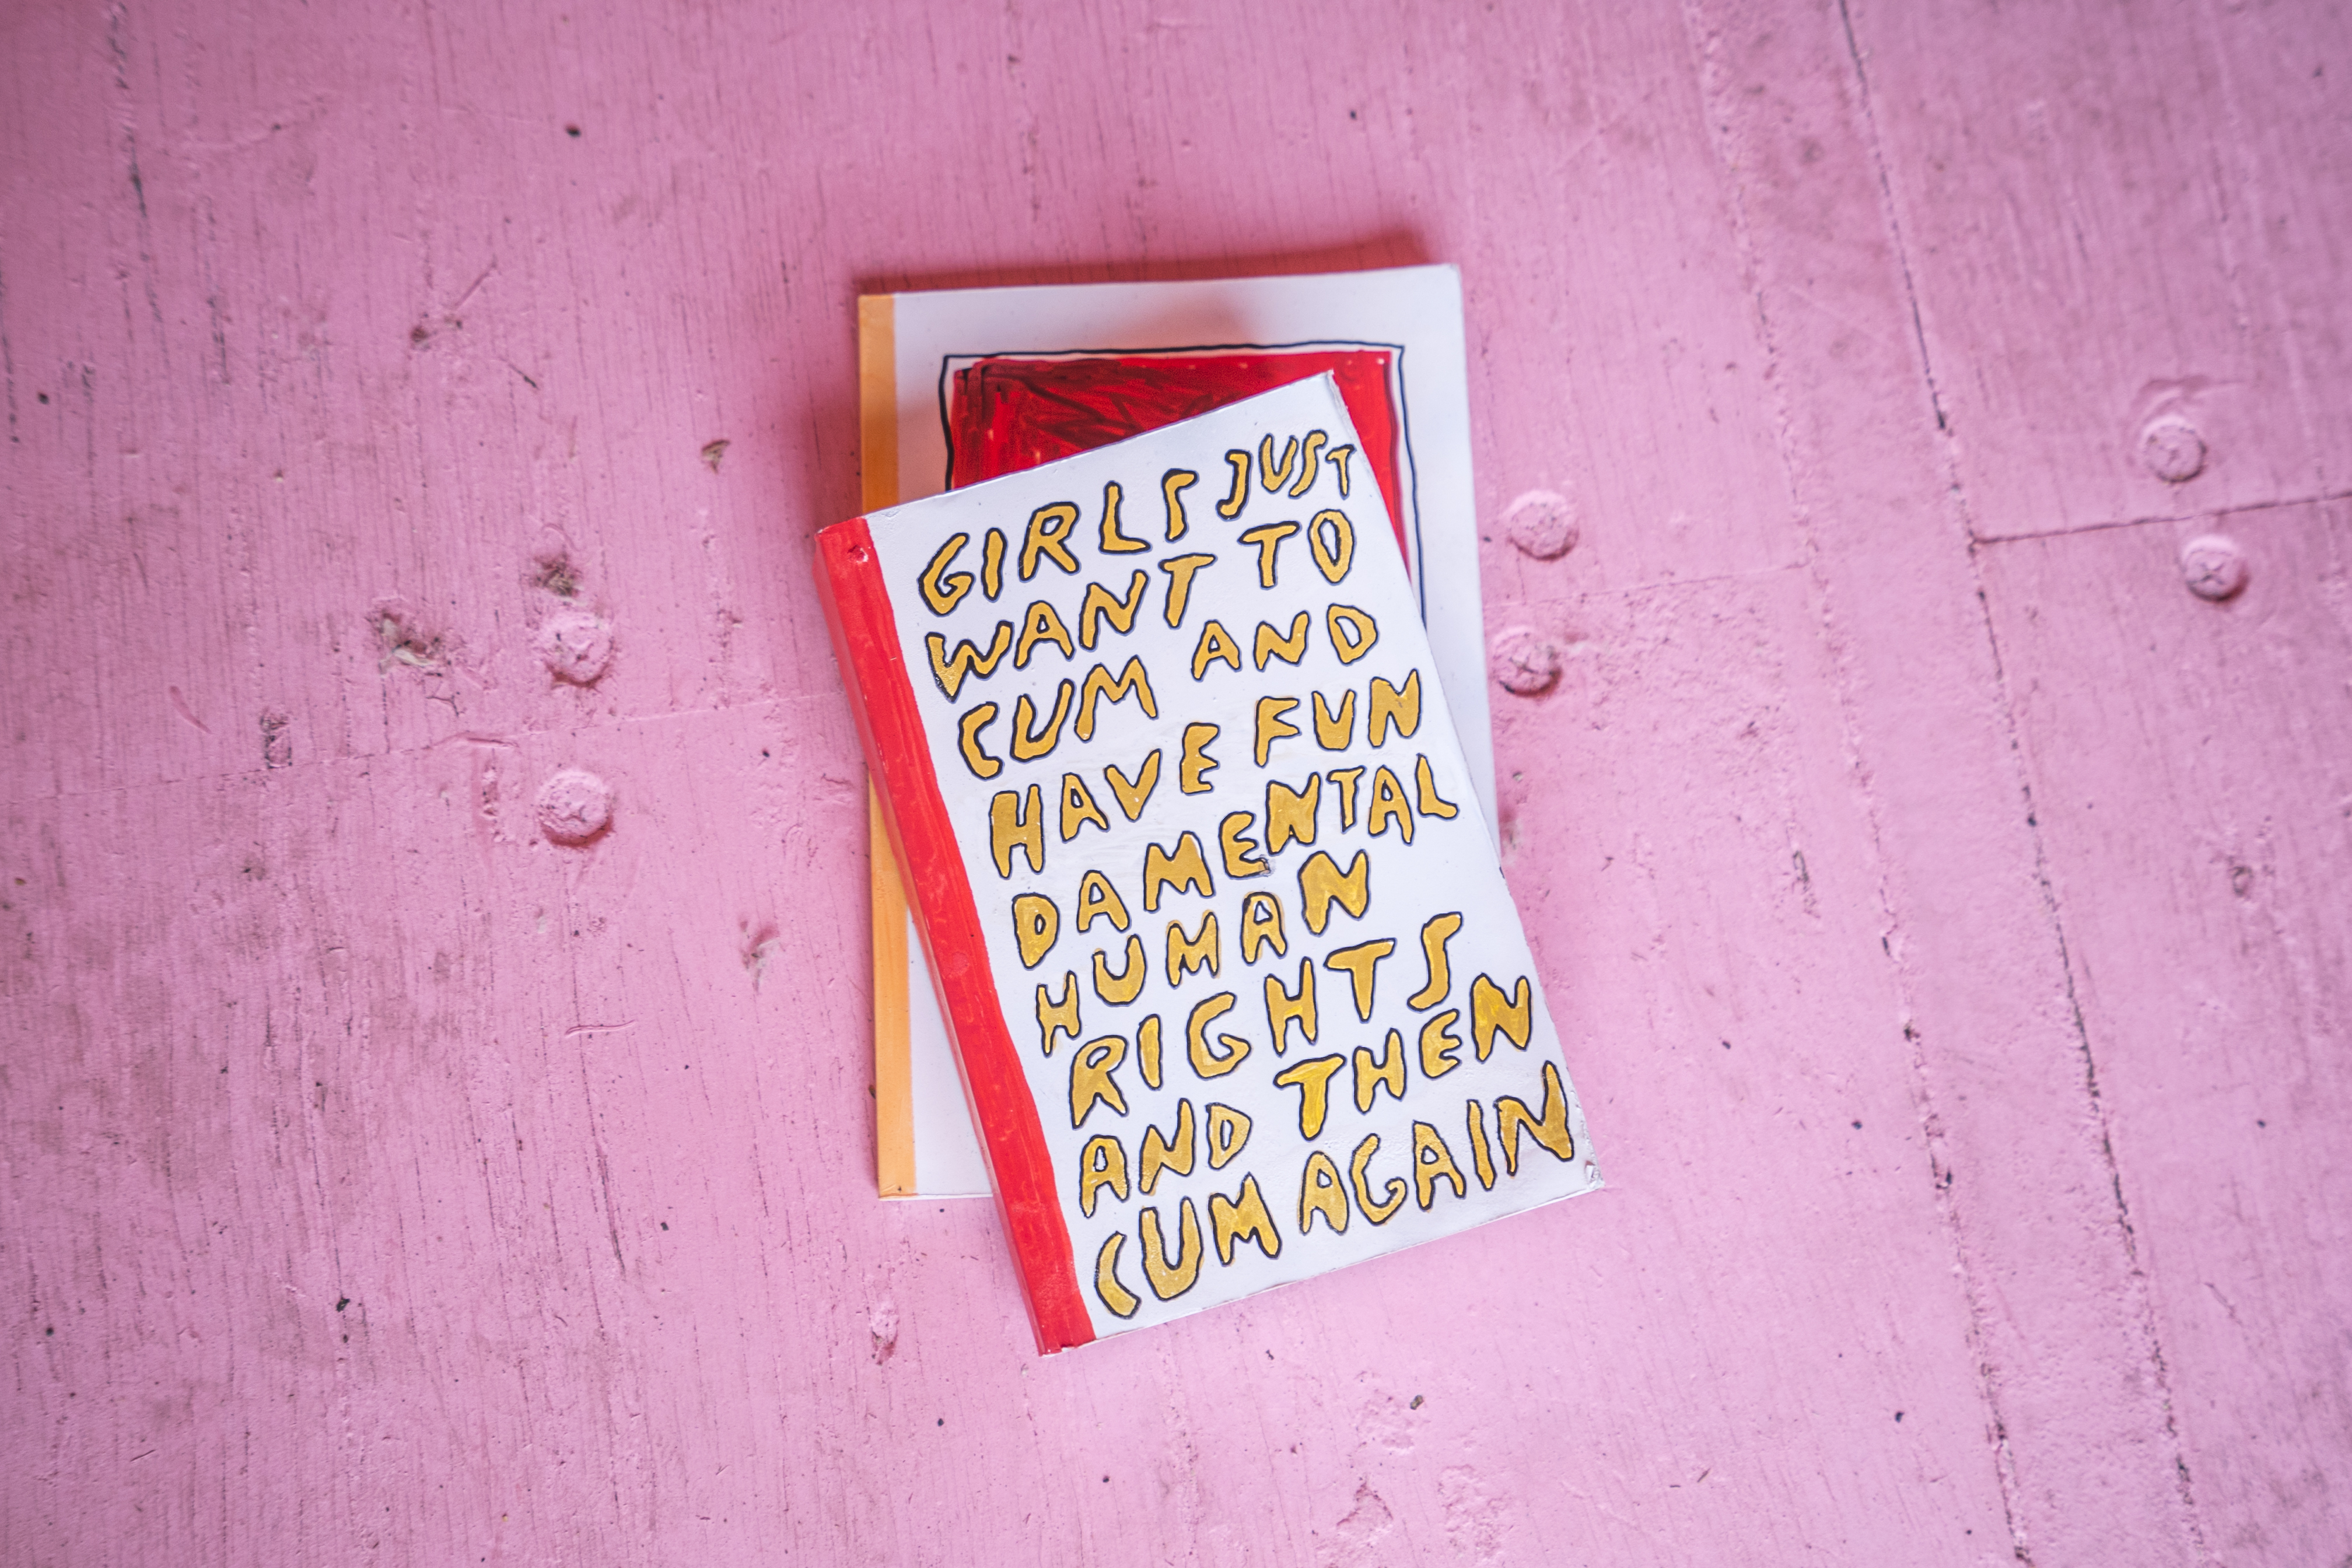 GIRLS JUST
WANT TO
CUM AND
HAVE FUN
DAMENTAL
HUMAN
RIGHTS
AND THEN
CUM AGAIN